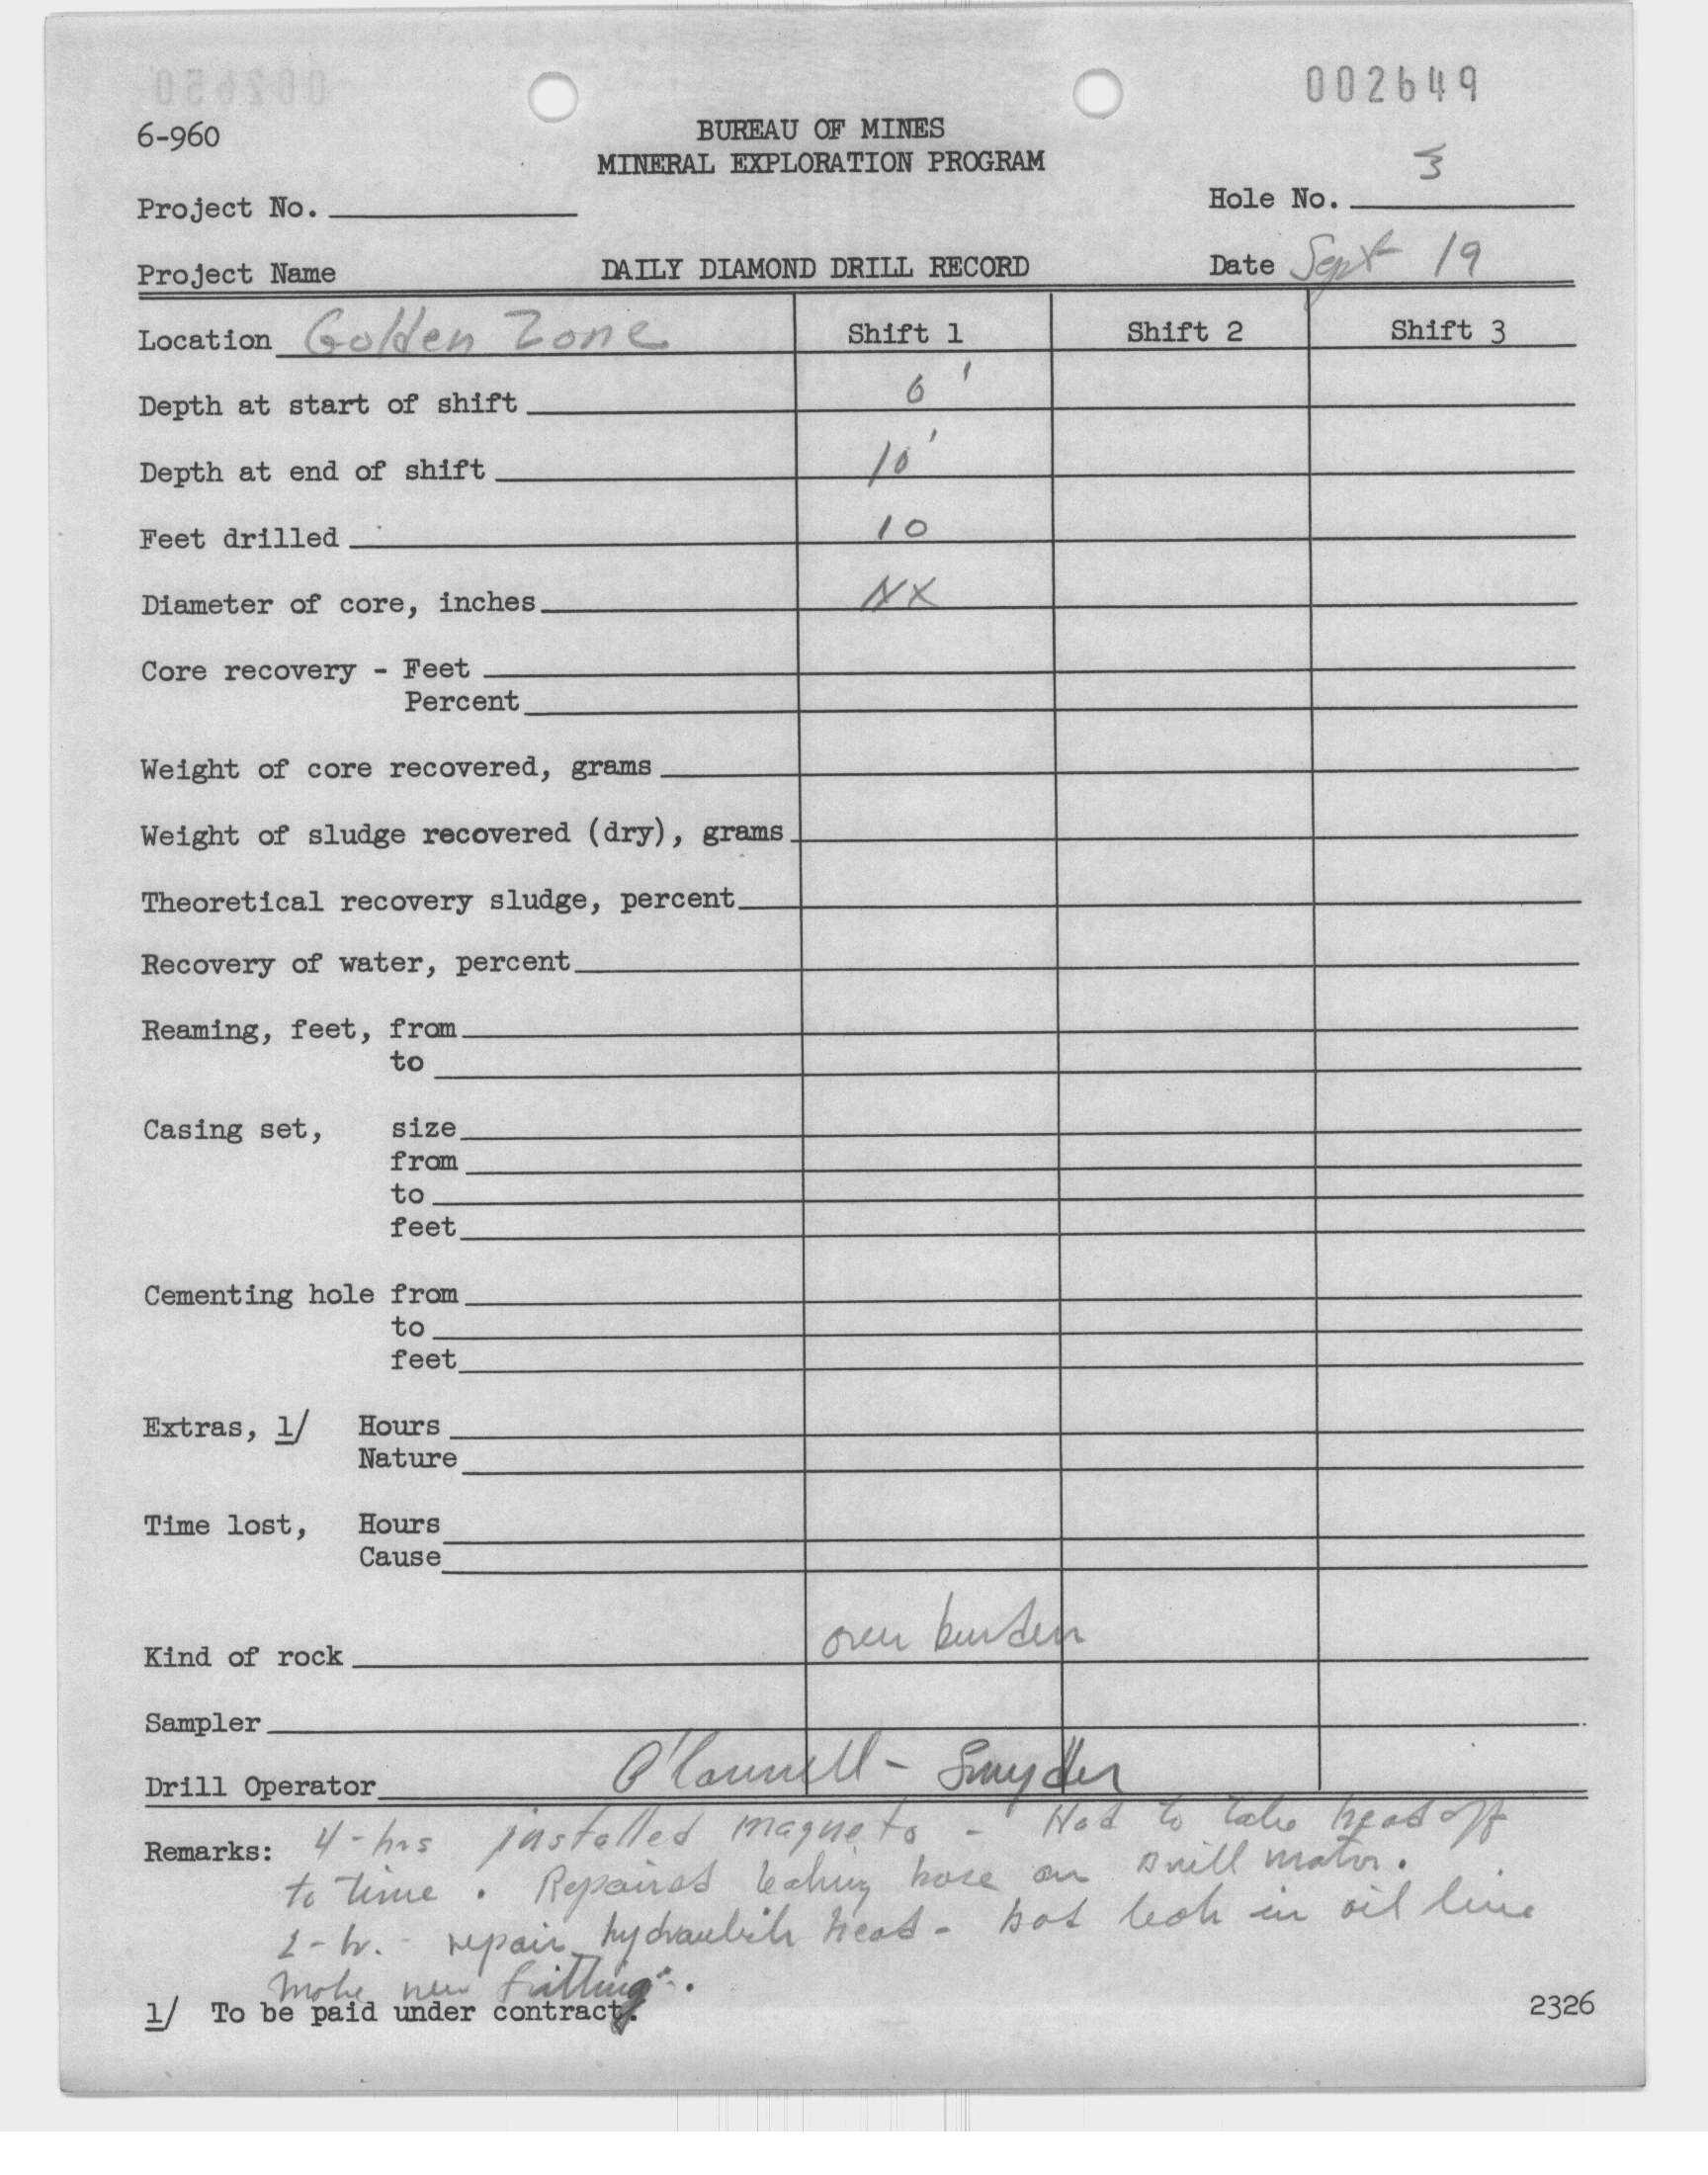 002650
002649
6-960
BUREAU OF MINES
MINERAL EXPLORATION PROGRAM
3
Project No.
Hole No.
Project Name
DAILY DIAMOND DRILL RECORD
Date Sept 19
Location Golden Zone
Shift 1
Shift 2
Shift 3
Depth at start of shift 0'
Depth at end of shift 10'
Feet drilled 10
Diameter of core, inches NX
Core recovery - Feet
Percent
Weight of core recovered, grams
Weight of sludge recovered (dry), grams
Theoretical recovery sludge, percent
Recovery of water, percent
Reaming, feet, from
to
Casing set, size
from
to
feet
Cementing hole from
to
feet
Extras, 1/ Hours
Nature
Time lost, Hours
Cause
Kind of rock over burden
Sampler
Drill Operator O'Connell - Snyder
Remarks: 4-hrs installed magneto - Had to take head off
to time. Repaired leaking hose on drill motor.
2-hr. - repair hydraulic head - leak in oil line
make new fitting.
1/ To be paid under contract.
2326